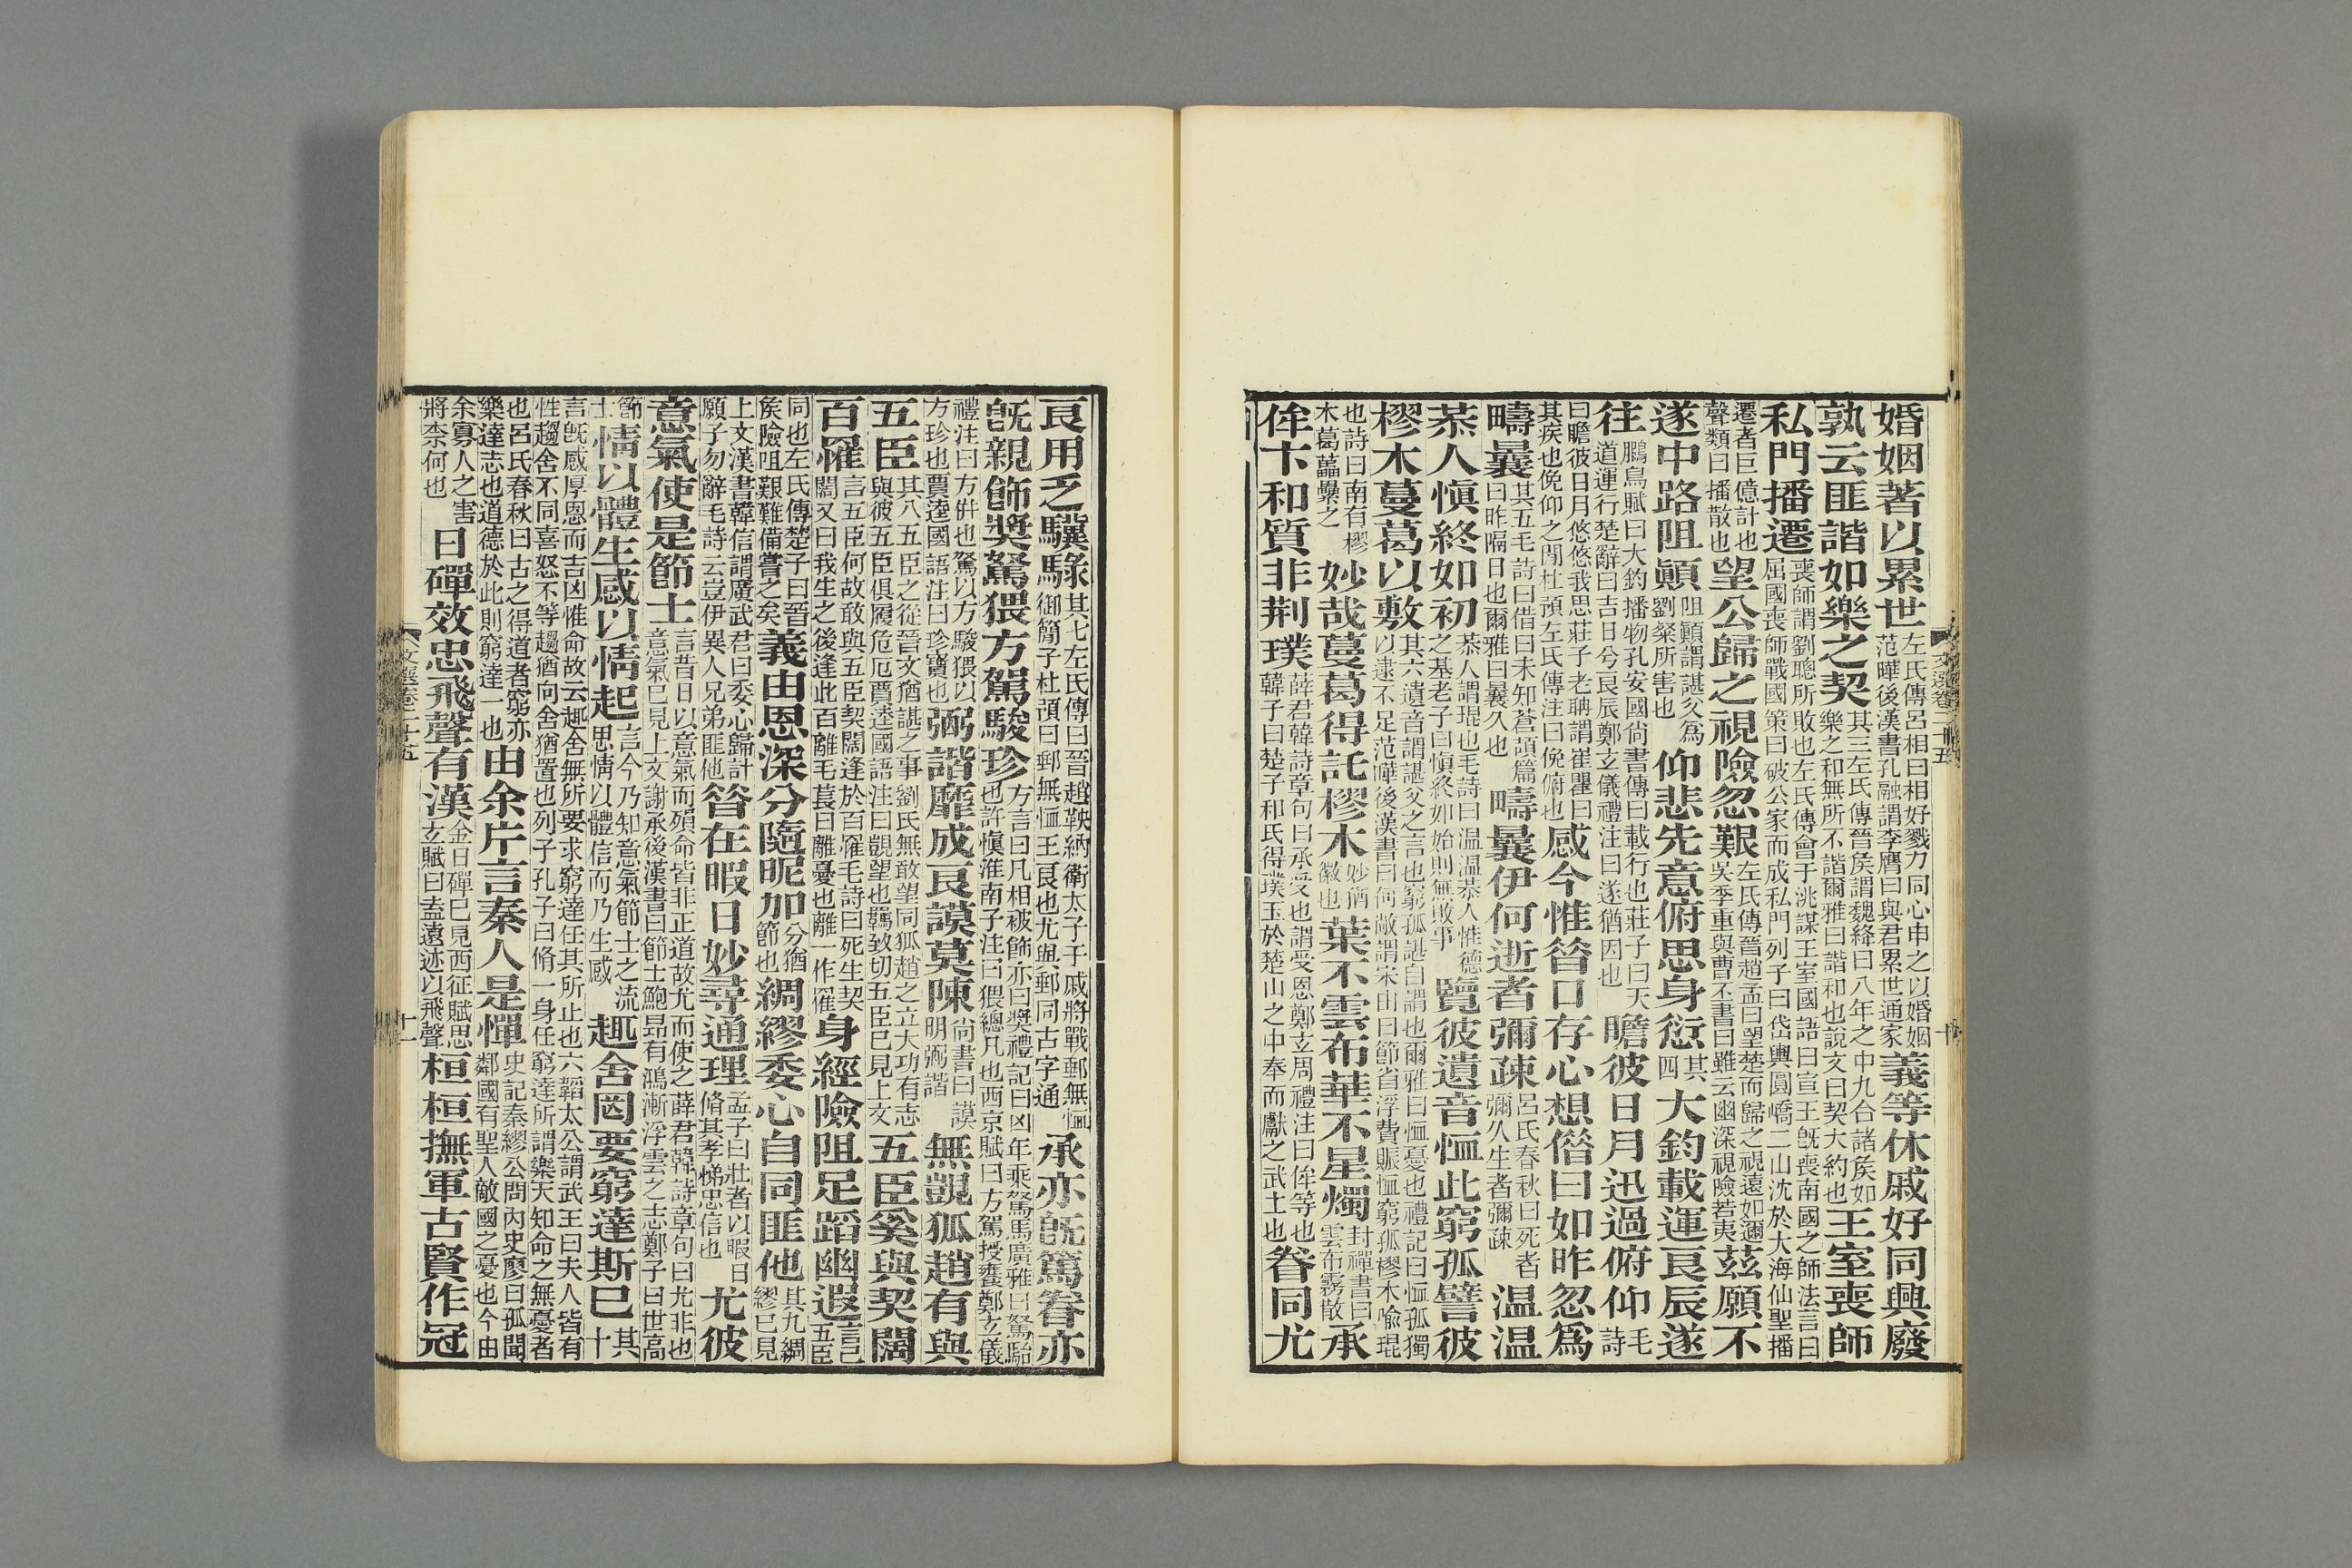 婚姻著以累世左氏傳呂相曰相好戮力同心申之以婚姻范曄後漢書孔融謂李膺曰與君累世通家義等休戚好同興廢
孰云匪諧如樂之契其三左氏傳晉侯謂魏絳曰八年之中九合諸侯如樂之和無所不諧爾雅曰諧和也說文曰契大約也王室喪師
私門播遷喪師謂劉聰所敗也左氏傳會于洮謀王室國語曰宣王旣喪南國之師法言曰屈國喪師戰國策曰破公家而成私門列子曰岱輿圓嶠二山沈於大海仙聖播
遷者巨億計也聲類曰播散也望公歸之視險忽艱左氏傳晉趙孟曰望楚而歸之視遠如邇吳季重與曹丕書曰雖云幽深視險若夷茲願不
遂中路阻顚阻顚謂諶父爲劉粲所害也仰悲先意俯思身愆其四大鈞載運良辰遂
往鵩鳥賦曰大鈞播物孔安國尚書傳曰載行也莊子曰天道運行楚辭曰吉日兮良辰鄭玄儀禮注曰遂猶因也瞻彼日月迅過俯仰毛詩
曰瞻彼日月悠悠我思莊子老聃謂崔瞿曰其疾也俛仰之閒杜預左氏傳注曰俛俯也感今惟昝口存心想借曰如昨忽爲
疇曩其五毛詩曰借曰未知蒼頡篇曰昨隔日也爾雅曰曩久也疇曩伊何逝者彌疎呂氏春秋曰死者彌久生者彌疎温温
恭人愼終如初恭人謂琨也毛詩曰温温恭人惟德之基老子曰愼終如始則無敗事覽彼遺音恤此窮孤譬彼
樛木蔓葛以敷其六遺音謂諶父之言也窮孤諶自謂也爾雅曰恤憂也禮記曰恤孤獨以逮不足范曄後漢書曰何敞謂宋由曰節省浮費賑恤窮孤樛木喻琨
也詩曰南有樛木葛藟纍之妙哉蔓葛得託樛木妙猶徽也葉不雲布華不星燭封禪書曰雲布霧散承
侔卞和質非荆璞薛君韓詩章句曰承受也謂受恩鄭玄周禮注曰侔等也韓子曰楚子和氏得璞玉於楚山之中奉而獻之武王也眷同尤
良用乏驥騄其七左氏傳曰晉趙鞅納衛太子于戚將戰郵無恤御簡子杜預曰郵無恤王良也尤與郵同古字通承亦旣篤眷亦
旣親飾獎駑猥方駕駿珍方言曰凡相被飾亦曰獎禮記曰凶年乘駑馬廣雅曰駑駘也許愼淮南子注曰猥總凡也西京賦曰方駕授饔鄭玄儀
禮注曰方併也駑以方駿猥以方珍也賈逵國語注曰珍寶也弼諧靡成良謨莫陳尚書曰謨明弼諧無覬狐趙有與
五臣其八五臣之從晉文猶諶之事劉氏無敢望同狐趙之立大功有志與彼五臣俱履危厄賈逵國語注曰覬望也羈致切五臣已見上文五臣奚與契闊
百罹言五臣何故敢與五臣契闊逢於百罹毛詩曰死生契闊又曰我生之後逢此百離毛萇曰離憂也離一作罹身經險阻足蹈幽遐言己五臣
同也左氏傳楚子曰晉侯險阻艱難備嘗之矣義由恩深分隨昵加分猶節也綢繆委心自同匪他其九綢繆已見
上文漢書韓信謂廣武君曰委心歸計願子勿辭毛詩云豈伊異人兄弟匪他昝在暇日妙尋通理孟子曰壯者以暇日脩其孝悌忠信也尤彼
意氣使是節士言昔日以意氣而殞命皆非正道故尤而使之薛君韓詩章句曰尤非也意氣已見上文謝承後漢書曰節士鮑昂有鴻漸浮雲之志鄭子曰世高
節士情以體生感以情起言今乃知意氣節士之流思情以體信而乃生感趣舍罔要窮達斯已其十
言旣感厚恩而吉凶惟命故云趣舍無所要求窮達任其所止也六韜太公謂武王曰夫人皆有性趨舍不同喜怒不等趨猶向舍猶置也列子孔子曰脩一身任窮達所謂樂天知命之無憂者
也呂氏春秋曰古之得道者窮亦樂達志也道德於此則窮達一也由余片言秦人是憚史記秦繆公問內史廖曰孤聞鄰國有聖人敵國之憂也今由
余寡人之害將柰何也日磾效忠飛聲有漢金日磾已見西征賦思玄賦曰盍遠迹以飛聲桓桓撫軍古賢作冠